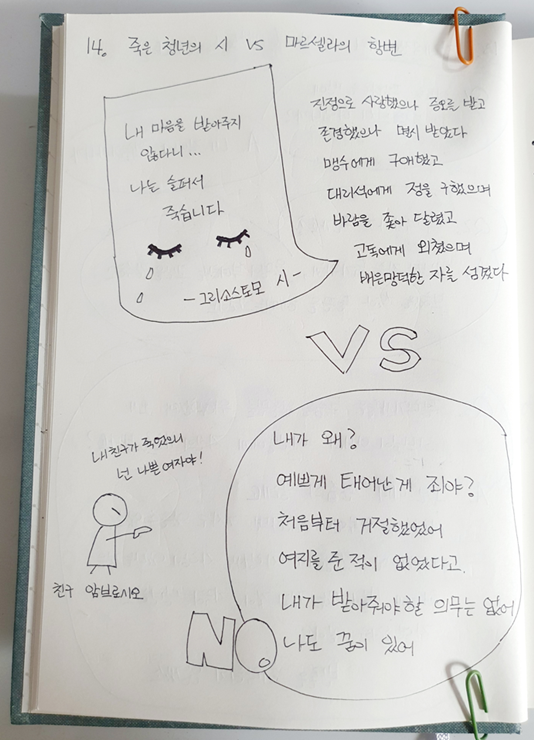 14. 죽은 청년의 시 VS 마르셀라의 항변
내 마음을 받아주지
않다니...
나는 슬퍼서
죽습니다
-그리소스토모 시-
진정으로 사랑했으나 증오를 받고
존경했으나 멸시 받았다
맹수에게 구애했고
대리석에게 정을 구했으며
바람을 쫓아 달렸고
고독에게 외쳤으며
배은망덕한 자를 섬겼다
VS
내 친구가 죽었으니
넌 나쁜 여자야!
친구 암브로시오
내가 왜?
예쁘게 태어난게 죄야?
처음부터 거절했었어
여지를 준 적이 없었다고.
내가 받아줘야 할 의무는 없어
나도 꿈이 있어
NO.